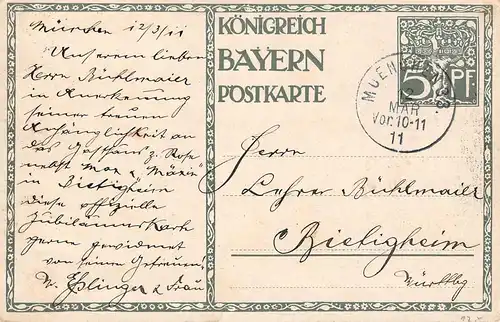 München 12/3/11
Unserem lieben
Herrn Bühlmaier
in Anerkennung
seiner treuen
Anhänglichkeit an
das Gasthaus z. Rose
nebst Max & Marie
in Bietigheim
diese offizielle
Jubiläumskarte
gerne gewidmet
von seinen Getreuen:
Eßlinger & Frau
KÖNIGREICH
BAYERN
POSTKARTE
5 PF
MUENCHEN
MÄR
Vor. 10-11
11
Herrn
Lehrer Bühlmaier
Bietigheim
Württbg